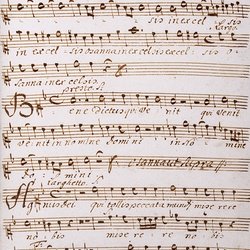 sis in excel - sis
largo
in excel - sis osanna in excelsis excel - sis o
sanna in excelsis
presto
Benedictus qui venit qui venit
venit in nomine domini in no mine
Do mini osanna ut supra
larghetto
Agnus dei qui tollis peccata mundi mise rere
no bis mise re re no bis